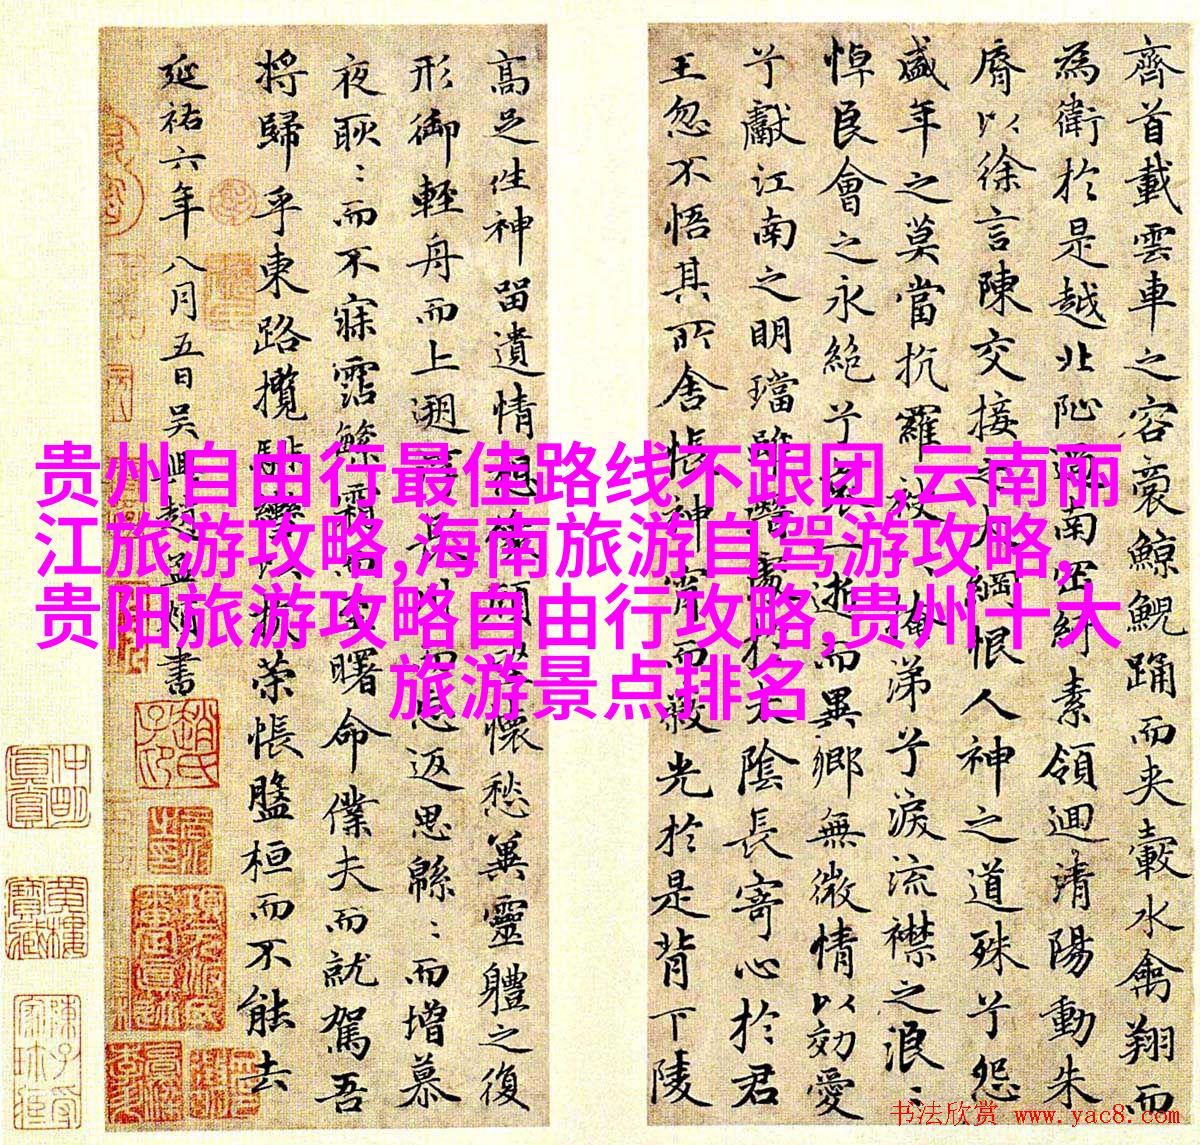 齊首載雲車之容裔鯨鯢踊而夾轂水禽翔而
為衛於是越北沚過南岡紆素領迴清陽動朱
脣以徐言陳交接之大綱恨人神之道殊兮怨
盛年之莫當抗羅袂以掩涕兮淚流襟之浪〻
悼良會之永絕兮哀一逝而異鄉無微情以効愛
兮獻江南之明璫雖潛處於太陰長寄心於君
王忽不悟其所舍悵神宵而蔽光於是背下陵
高足往神留遺情想像顧望懷愁冀靈體之復
形御輕舟而上遡浮長川而忘返思緜〻而增慕
夜耿〻而不寐霑繁霜而至曙命僕夫而就駕吾
將歸乎東路攬騑轡以抗策悵盤桓而不能去
延祐六年八月五日吳興趙孟頫書
贵州自由行最佳路线不跟团,云南丽
江旅游攻略,海南旅游自驾游攻略,
贵阳旅游攻略自由行攻略,贵州十大
旅游景点排名
书法欣赏 www.yac8.com